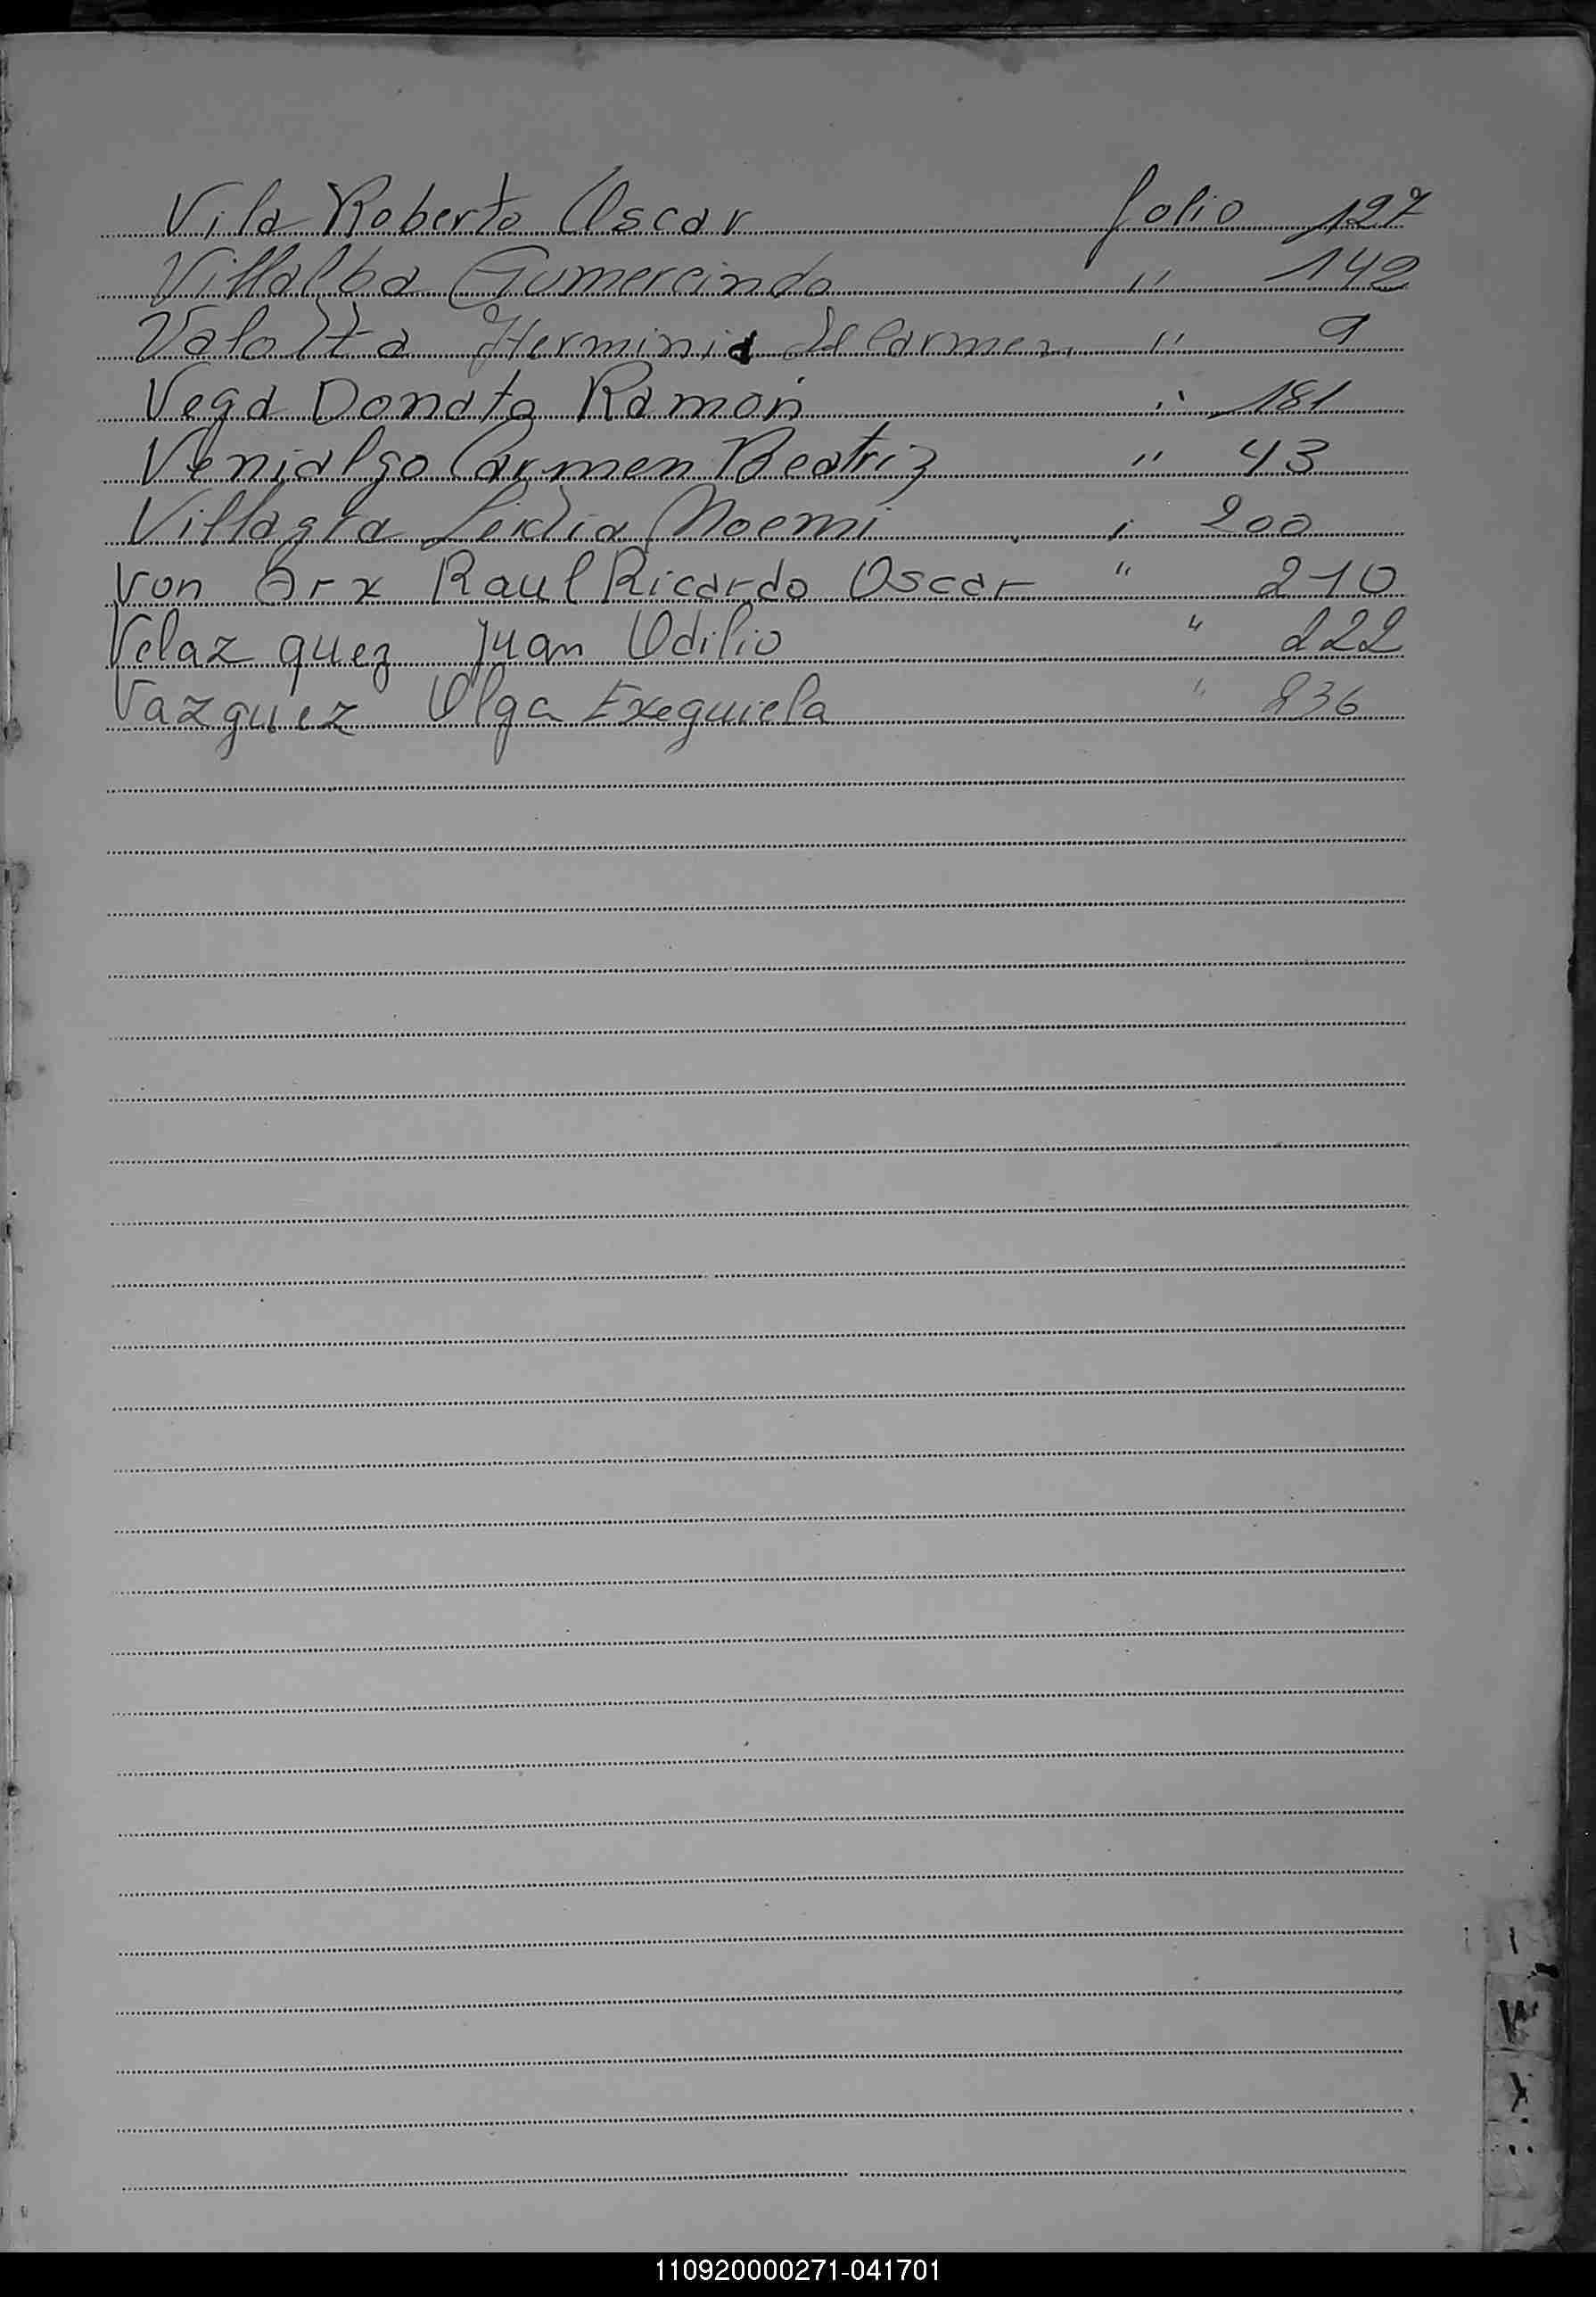 Vila Roberto Oscar folio 127
Villalba Gumercindo " 142
Valotta Herminia del Carmen " 9
Vega Donato Ramón " 181
Venialgo Carmen Beatriz " 43
Villagra Lidia Noemi " 200
Von Arx Raul Ricardo Oscar " 210
Velaz quez Juan Odilio " 222
Vazquez Olga Exequiela " 236
W
110920000271-041701